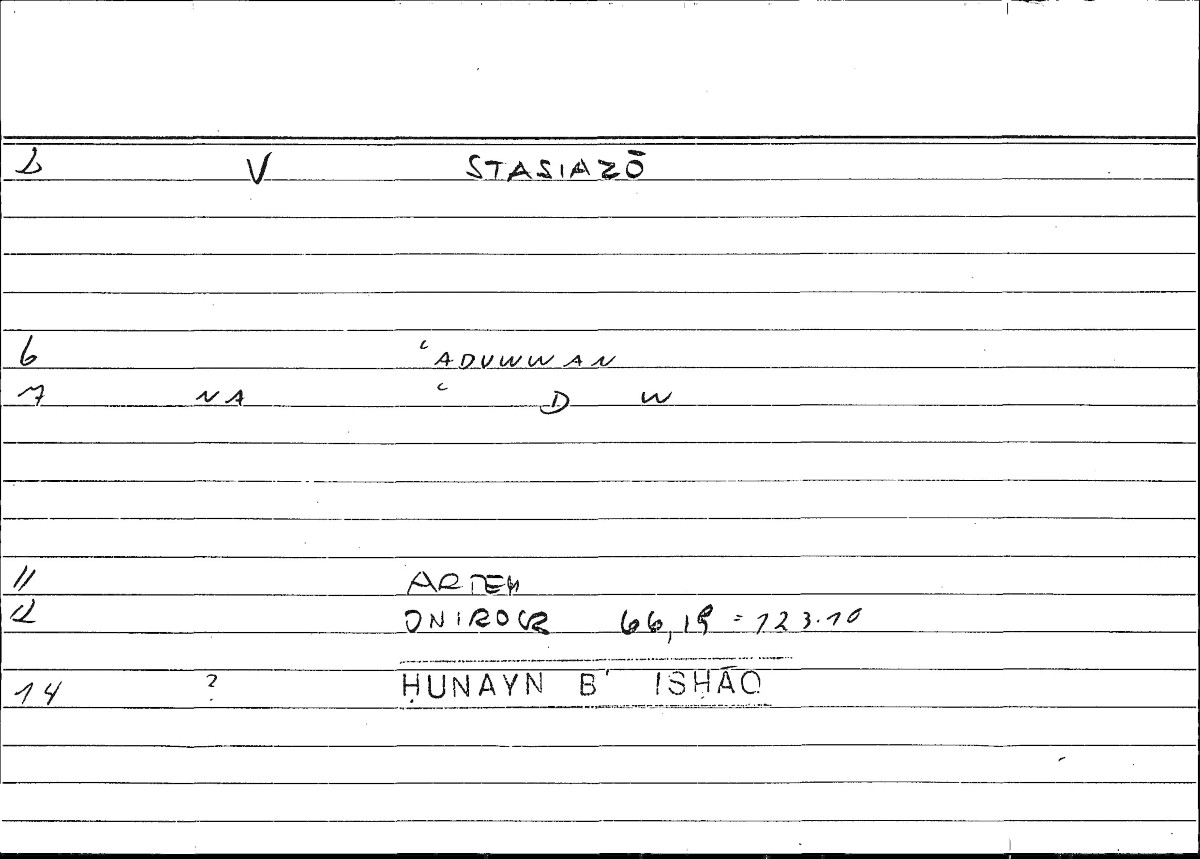 1 V STASIAZŌ
6 ʿADUWWAN
7 NA ʿ D W
11 ARTEM
12 ONIROCR 66,19 = 123.10
14 ? ḤUNAYN B' ISḤĀQ